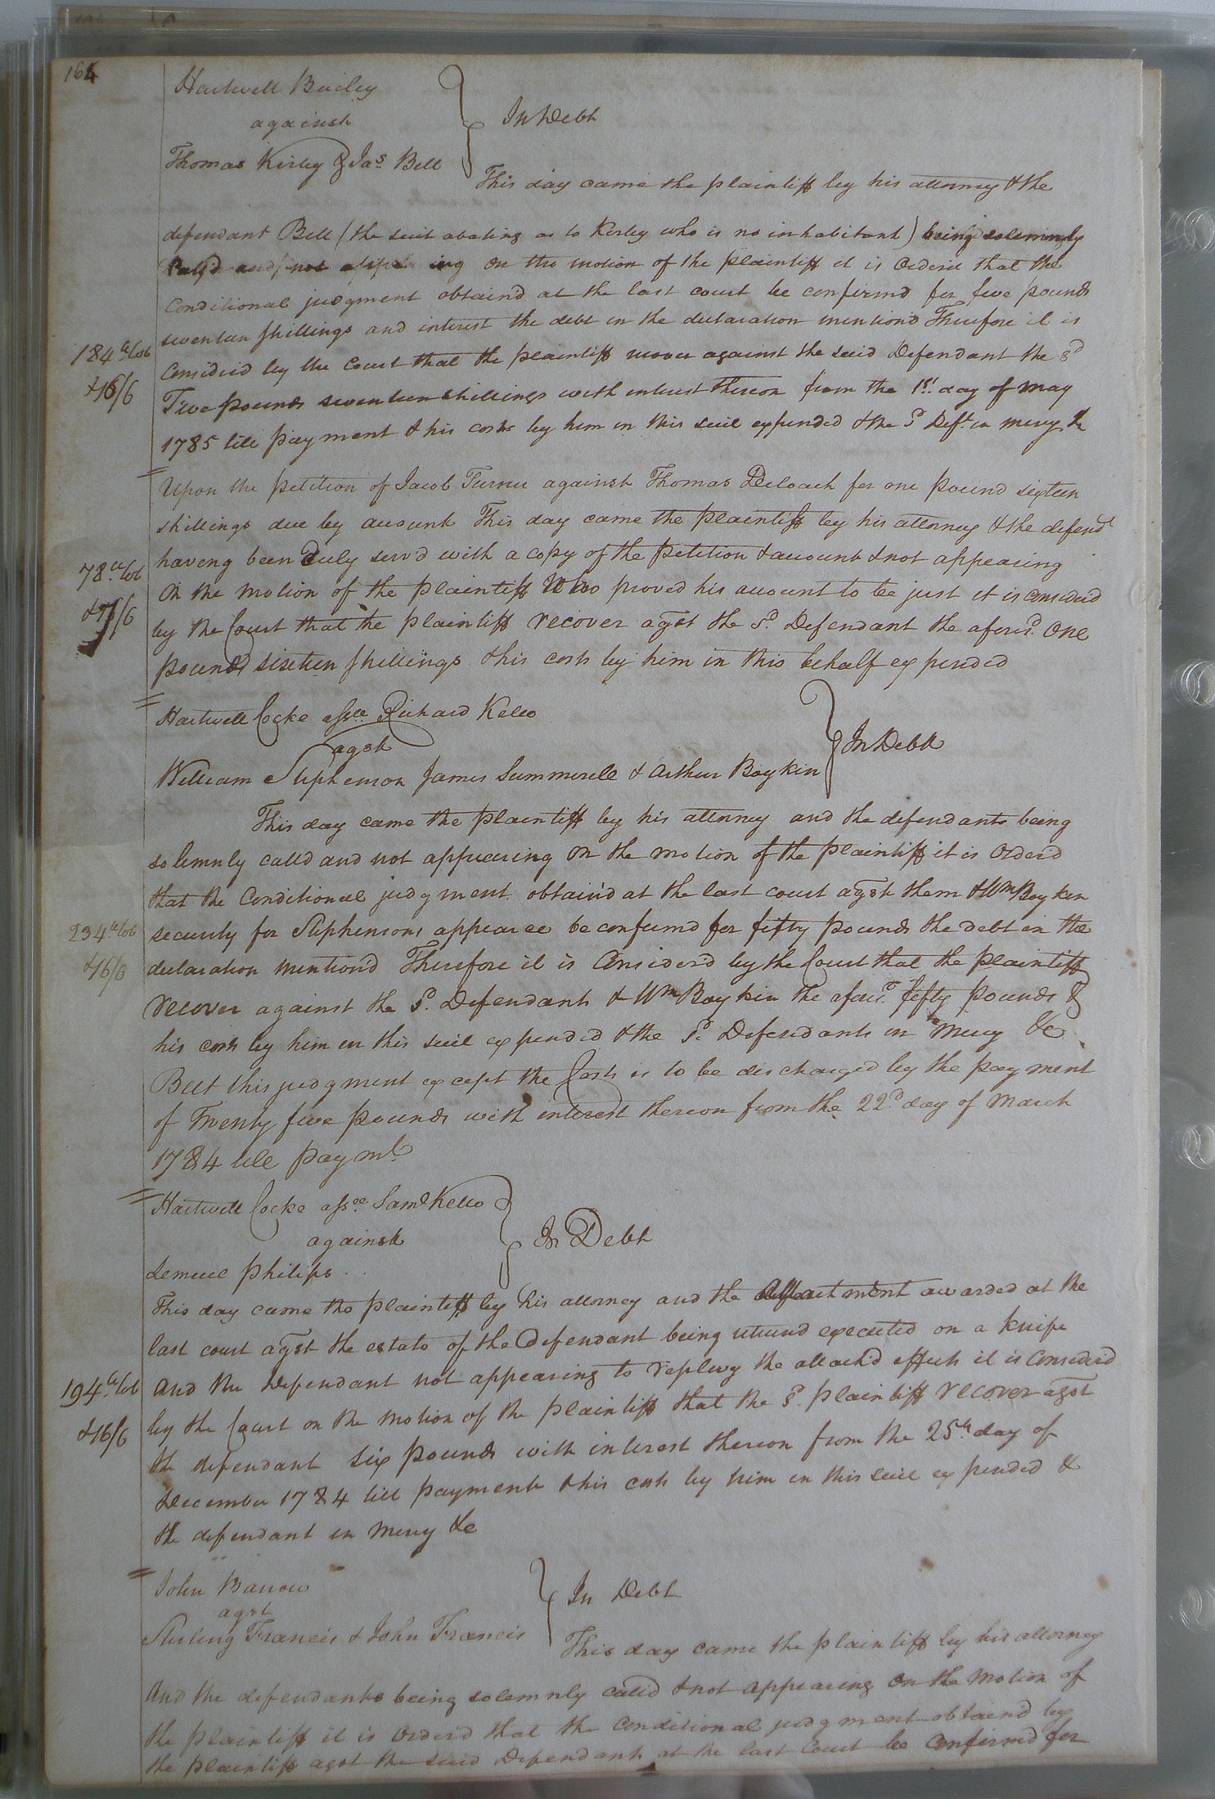 164
Hartwell Bailey
against
Thomas Kirby & Jas Bell
In Debt
This day came the plaintiff by his attorney & the
defendant Bell (the suit abating as to Kirby who is no inhabitant) being solemnly
Call'd and not appearing On the motion of the plaintiff it is Orderd that the
Conditional judgment obtaind at the last court be confirmd for five pounds
seventeen shillings and interest the debt in the declaration mention'd Therefore it is
184 lb Tob
Considerd by the Court that the plaintiff recover against the said Defendant the sd
& 16/6
Five pounds seventeen shillings with interest thereon from the 1st day of May
1785 till payment & his costs by him in this suit expended & the sd Deft in mercy &c
Upon the petition of Jacob Turner against Thomas Deloach for one pound sixteen
shillings due by account This day came the plaintiff by his attorney & the defendt
having been Duly serv'd with a copy of the petition & account & not appearing
78 lb Tob
On the motion of the plaintiff Who proved his account to be just it is considerd
& 7/6
by the Court that the plaintiff recover agst the sd Defendant the aforesd One
pound sixteen shillings & his costs by him in this behalf expended
Hartwell Cocke assee Richard Kello
agst
William Stephenson James Summerell & Arthur Boykin
In Debt
This day came the plaintiff by his attorney and the defendants being
solemnly calld and not appearing On the motion of the plaintiff it is Order'd
that the Conditional judgment obtain'd at the last court agst them & Wm Boykin
234 lb Tob
security for Stephensons appearee be confirmd for fifty pounds the debt in the
& 16/6
declaration mention'd Therefore it is Consider'd by the Court that the plaintiff
recover against the sd Defendants & Wm Boykin the aforesd fifty pounds &
his costs by him in this suit expended & the sd Defendants in Mercy &c
But this judgment except the Costs is to be discharged by the payment
of Twenty five pounds with interest thereon from the 22d day of March
1784 till paymt
Hartwell Cocke assee Saml Kello
against
Lemuel Philips
In Debt
This day came the plaintiff by his attorney and the Attachment awarded at the
last court agst the estate of the Defendant being returnd executed on a knife
And the Defendant not appearing to replevy the attach'd effects it is Considerd
194 lb Tob
by the Court on the motion of the plaintiff that the sd plaintiff recover agst
& 16/6
the defendant six pounds with interest thereon from the 25th day of
December 1784 till payment & his costs by him in this suit expended &
the defendant in mercy &c
John Barrow
agst
Sterling Francis & John Francis
In Debt
This day came the plaintiff by his attorney
And the defendants being solemnly calld & not appearing On the Motion of
the plaintiff it is Orderd that the Conditional judgment obtaind by
the plaintiff agst the said Defendants at the last Court be Confirmd for